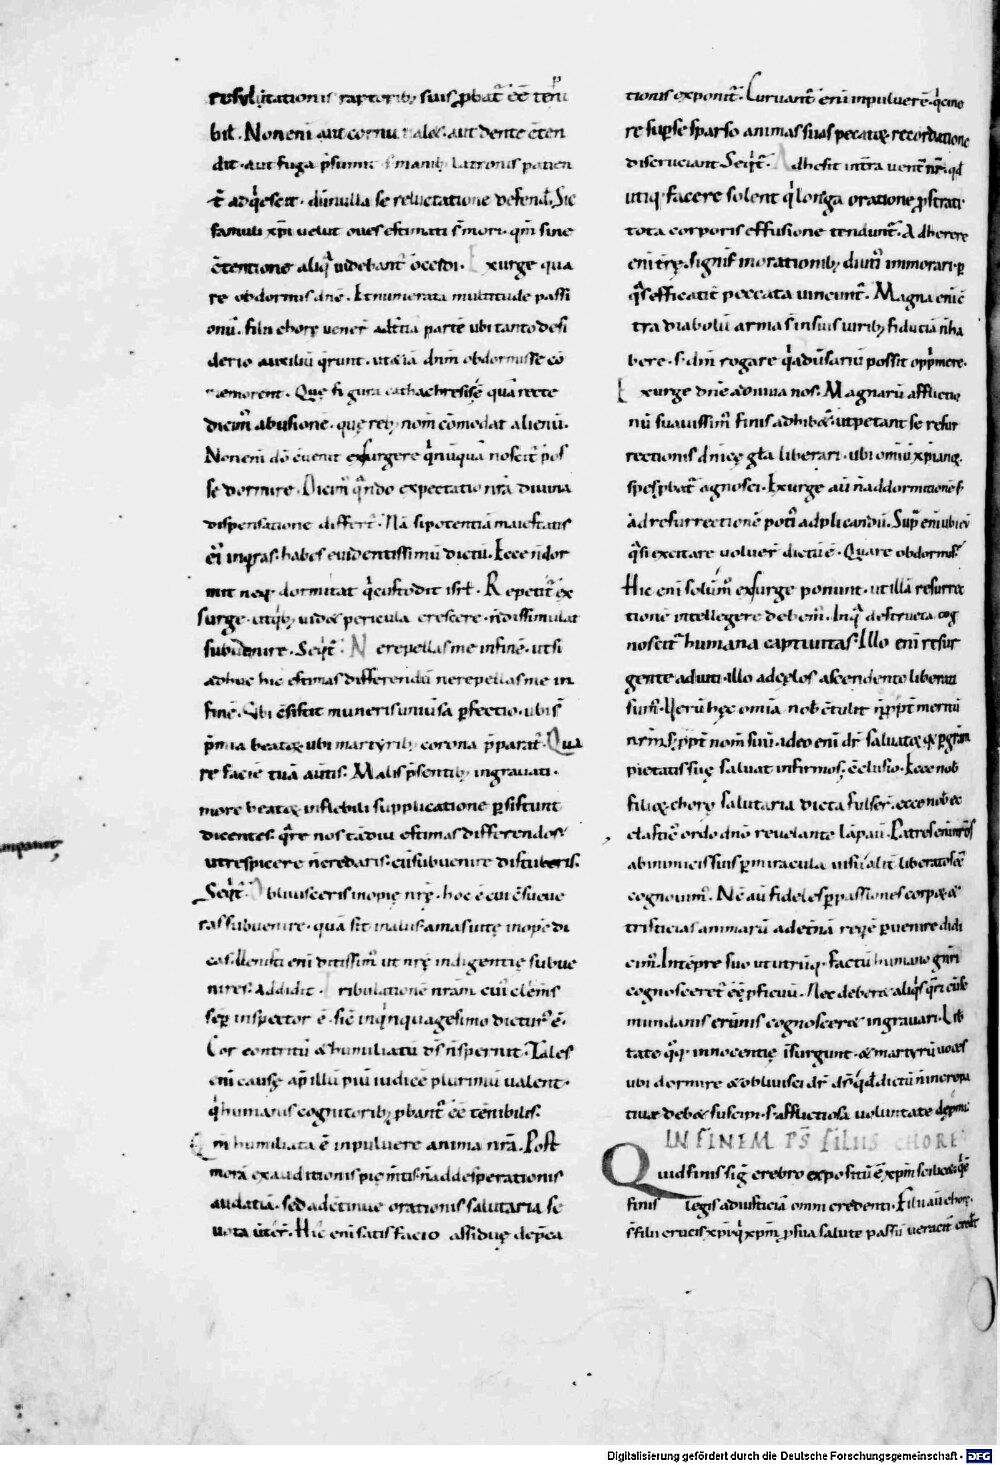 bil. Non eni aut cornu aut dente ēten
dit. aut fuga
t̄ adq̄escit. dū nulla se reluctatione defend. Sic
famuli xp̄i uelut oues estimati s̄ mori. qm̄ sine
ētentione aliq̄ uidebant̄ occidi. Exurge qua
re obdormis dn̄e. Et numerata multitude passi
onū. filii chorę uenēr ad t̄tiā partē ubi tanto desi
derio auxiliū q̄runt. ut &iā dn̄m obdormisse cō
memorent. Quę figura cathachresis ē quā recte
dicim̄ abusionē. quę reb; nom̄ cōmodat alienū.
Non eni dō ēuenit exsurgere q̄ nūquā noscit̄ pos
se dormire. Dicim̄ q̄ndo expectatio nr̄a diuina
dispensatione differt̄. Nā si potentiā maiestatis
ei inq̄ras. habes euidentissimū dictū. Ecce n̄ dor
mit neq; dormitat q̄ custodit isrl̄. Repetit̄ ex
surge. ut q̄b; uid& pericula crescere. n̄ dissimulat
subuenire. Seqt̄. Ne repellas me in finē. ut si
adhuc hic estimas differendū ne repellas me in
finē. Ubi ē sistit muneris uniūsa p̄fectio. ubi s̄
p̄mia beatoꝝ ubi martyrib; corona p̄parat̄. Qua
re faciē tuā au̅tis. Malis p̄sentib; ingrauati.
more beatoꝝ inflebili supplicatione p̄sistunt
dicentes. q̄re nos tādiu estimas differendos.
ut respicere n̄ credaris. eū subuenire distuleris.
Seqt̄. Obliuisceris inopię nr̄ę. hoc ē cui ēsueue
ras subuenire. quā sit malus amas uitę inopē di
nires. Addidit. Tribulationē nrām. cui clem̄s
semp̄ inspector ē. sic̄ in q̄nquagesimo dictur̄ ē.
Cor contritū & humiliatū d̄s n̄ spernit. Tales
eni causę ap̄ illū piū iudicē plurimū ualent.
q̄ humanis cognitorib; p̄bant̄ ēē tēnibiles.
Qm̄ humiliata ē in puluere anima nr̄a. Post
morā exauditionis pię m̄tis n̄ ad desperationis
audatiā. sed ad ētinue orationis salutaria se
uota ūter̄. Hic eni satisfacio assiduę depca
tionis exponit̄. Curuant̄ eni in puluerē. q̄ cino
re sup se sparso animas suas peccatoꝝ recordatione
discruciant. Seqt̄. Adhesit in tr̄a uent̄ nr̄. qd̄
utiq; facere solent q̄ longa oratione p̄strati.
tota corporis effusione tendunt̄. Adherere
eni tr̄ę. signif̄ in orationib; diuti immorari. p̄
q̄s efficatit̄ peccata uincunt̄. Magna eni ē
tra diabolū arma s̄ in suis uirib; fiduciā n̄ ha
bere. s; dn̄m rogare q̄ adūsariū possit opp̄mere.
Exurge dn̄e adiuua nos. Magnarū afflictio
nū suauissim̄ finis adhib&. ut petant se resur
rectionis dn̄icę gr̄a liberari. ubi omiū xp̄ianoꝝ
spes p̄bat̄ agnosci. Exurge aū n̄ ad dormitionē s;
ad resurrectionē poti adplicandū.
q̄si excitare uoluer̄ dictū ē. Quare obdormis.
Hic eni solūm exsurge ponunt. ut illā resurrec
tionē intellegere debem̄. In q̄ destructa cog
noscit̄ humana captiuitas. Illo eni resur
gente adiuti. illo ad cęlos ascendente liberati
pietatis suę saluat infirmos. ēclusio. Ecce nob̄
filioꝝ chorę salutaria dicta fulser̄. ecce nob̄ ec
clastię ordo dn̄o reuelante
ab inimicis suis p̄ miracula uisualit̄ liberatos ēē
cognouim̄. Nc̄ aū fideles p̄ passiones corpoꝝ &
tristicias animarū ad et̄nā req̄ē p̄uenire didi
cim̄. Intēpre suo ut utrūq; factū humano gn̄ri
cognosceret̄ ēē p̄ficuū. Nec deber&
mundanis erūnis cognoscere ingrauari. Lib̄
tate q̄r̄ innocentię īsurgunt. & martyrū uoces
ubi dormire & obliuisci dr̄. dr̄ qd̄ dictū n̄ increpa
tiuę deb& suscipi. s; afflictiosa uoluntate
IN FINEM PS̄ FILIIS CHORE
Quid finis sig̅ crebro expositū ē xp̄m scilic&
finis legis ad iusticiā omni credenti. Filii aū chore.
s̄ filii crucis xp̄i. q̄ xp̄m p̄ sua salute passū